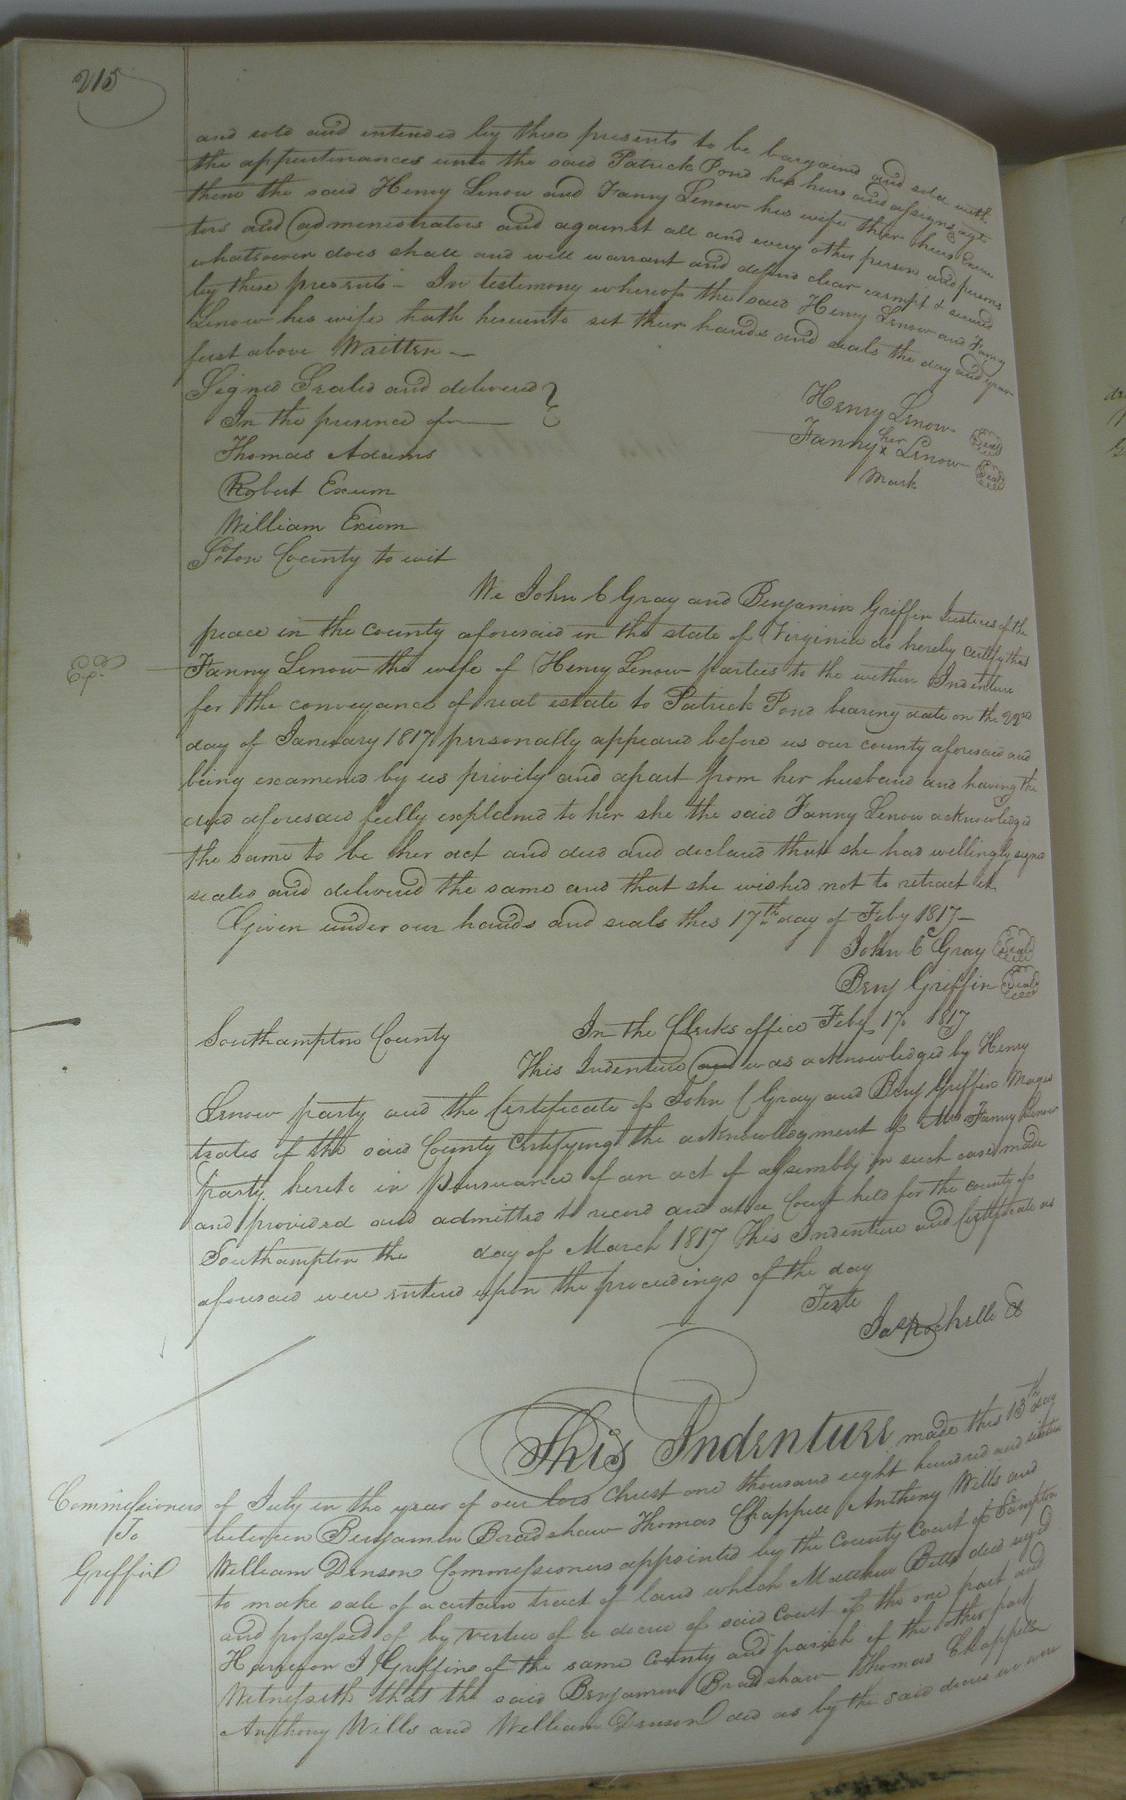 215
and sold and intended by these presents to be bargained and sold with
the appurtenances unto the said Patrick Pond his heirs and assigns agt
them the said Henry Lenow and Fanny Lenow his wife their heirs Execu
tors and administrators and against all and every other person and persons
whatsoever does shall and will warrant and defend clear exempt & secured
by these presents - In testimony whereof the said Henry Lenow and Fanny
Lenow his wife hath hereunto set their hands and seals the day and year
first above Written -
Signed Sealed and delivered
In the presence of
Henry Lenow Seal
Fanny her x Lenow Seal
mark
Thomas Adams
Robert Exum
William Exum
So'ton County to wit
We John C Gray and Benjamin Griffin Justices of the
peace in the county aforesaid in the state of Virginia do hereby certify that
Fanny Lenow the wife of Henry Lenow parties to the within Indenture
for the conveyance of real estate to Patrick Pond bearing date on the 22nd
day of January 1817 personally appeared before us our county aforesaid and
being examined by us privily and apart from her husband and having the
deed aforesaid fully explained to her she the said Fanny Lenow acknowledged
the same to be her act and deed and declared that she had willingly signed
sealed and delivered the same and that she wished not to retract it
Given under our hands and seals this 17th day of Feby 1817 -
John C Gray Seal
Benj Griffin Seal
Southampton County In the Clerks office Feby 17. 1817
This Indenture was acknowledged by Henry
Lenow party and the Certificate of John C Gray and Benj Griffin Magis
trates of the said County Certifying the acknowledgment of Mrs Fanny Lenow
party hereto in Pursuance of an act of assembly in such case made
and provided and admitted to record and at a Court held for the county of
Southampton the day of March 1817 This Indenture and Certificate as
aforesaid were entered upon the proceedings of the day
Teste
Jas Rochelle Cl
This Indenture made this 13th day
Commissioners
To
Griffin
of July in the year of our lord Christ one thousand eight hundred and sixteen
between Benjamin Bradshaw Thomas Chappell Anthony Wills and
William Denson Commissioners appointed by the County Court of So'ampton
to make sale of a certain tract of land which Matthew Bitts died seized
and possessed of by virtue of a decree of said Court of the one part and
Harrison J Griffin of the same County and parish of the other part
Witnesseth that the said Benjamin Bradshaw Thomas Chappell
Anthony Wills and William Denson did as by the said decree we were